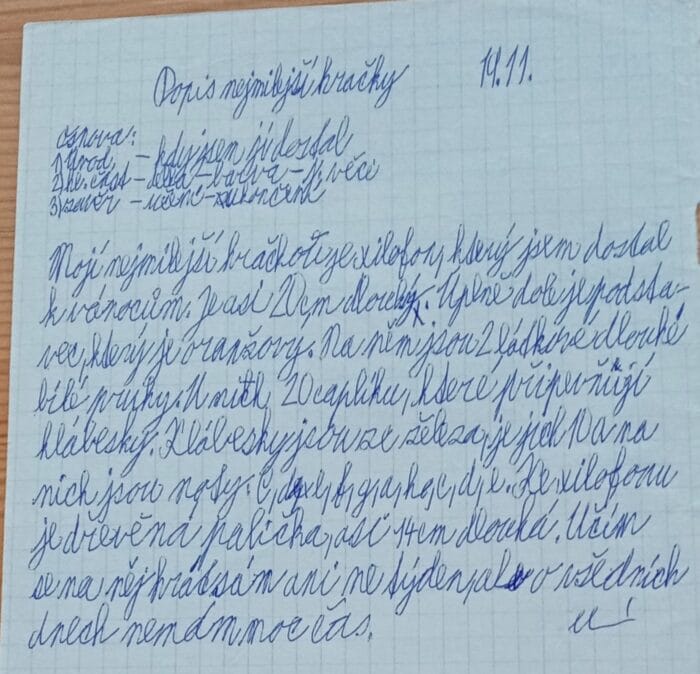 Popis nejmilejší hračky 14.11.
osnova:
1) úvod, - kdy jsem ji dostal
2) hl. část - délka - barva - j. věci
3) závěr - učení - zakončení
Mojí nejmilejší hračkou je xilofon, který jsem dostal
k vánocům. Je asi 20cm dlouhý. Úplně dole je podsta-
vec, který je oranžovy. Na něm jsou 2 látkové dlouhé
bílé pruhy. U nich 20 caplíku, ktere připevňují
hlábesky. Klábesky jsou ze železa, je jich 10 a na
nich jsou noty: c, d, e, f, g, a, h, c, d, e. Ke xilofonu
je dřevěná palička, asi 14cm dlouhá. Učím
se na něj hrát sám ani ne týden, ale o všedních
dnech nemám moc čas.